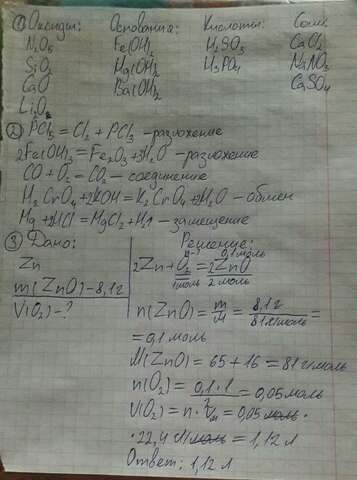 ① Оксиды: Основания: Кислоты: Соли:
N₂O₅ Fe(OH)₂ H₂SO₃ CaCl₂
SiO₂ Hg(OH)₂ H₃PO₄ NaNO₃
CaO Ba(OH)₂ CaSO₄
Li₂O
② PCl₅ = Cl₂ + PCl₃ – разложение
2Fe(OH)₃ = Fe₂O₃ + 3H₂O – разложение
CO + O₂ = CO₂ – соединение
H₂CrO₄ + 2KOH = K₂CrO₄ + 2H₂O – обмен
Mg + 2HCl = MgCl₂ + H₂↑ – замещение
③ Дано: Решение:
n-? 0,1 моль
Zn 2Zn + O₂ = 2ZnO
1моль 2 моль
m(ZnO) – 8,1г
V(O₂) – ? n(ZnO) = m/M = 8,1г/81г/моль =
= 0,1 моль
M(ZnO) = 65 + 16 = 81 г/моль
n(O₂) = 0,1 · 1/2 = 0,05 моль
V(O₂) = n · Vm = 0,05 моль ·
· 22,4 л/моль = 1,12 л
Ответ: 1,12 л